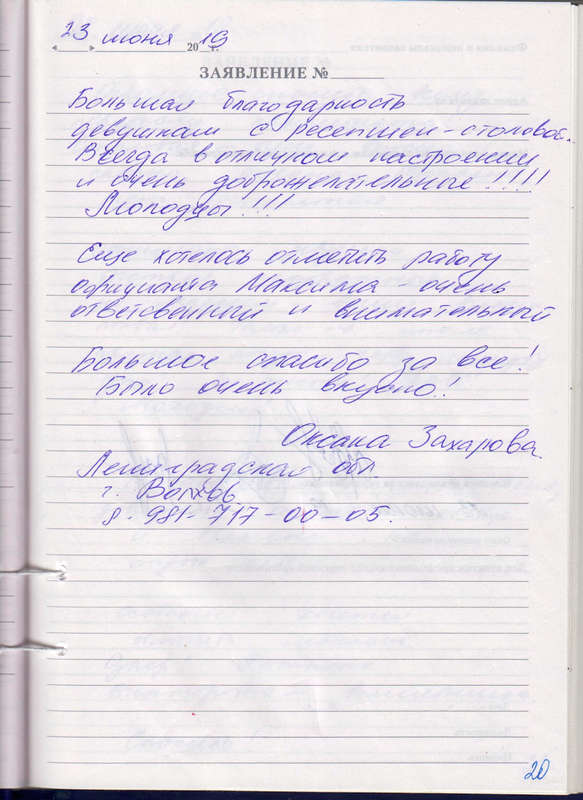 23 июня 2019 г.
ЗАЯВЛЕНИЕ №
Большая благодарность
девушкам с ресепшен-столовой.
Всегда в отличном настроении
и очень доброжелательные!!!!
Молодцы!!!
Еще хотелось отметить работу
официанта Максима - очень
ответсвенный и внимательный
Большое спасибо за все!
Было очень вкусно!
Оксана Захарова.
Ленинградская обл.
г. Волхов.
8-981-717-00-05.
20